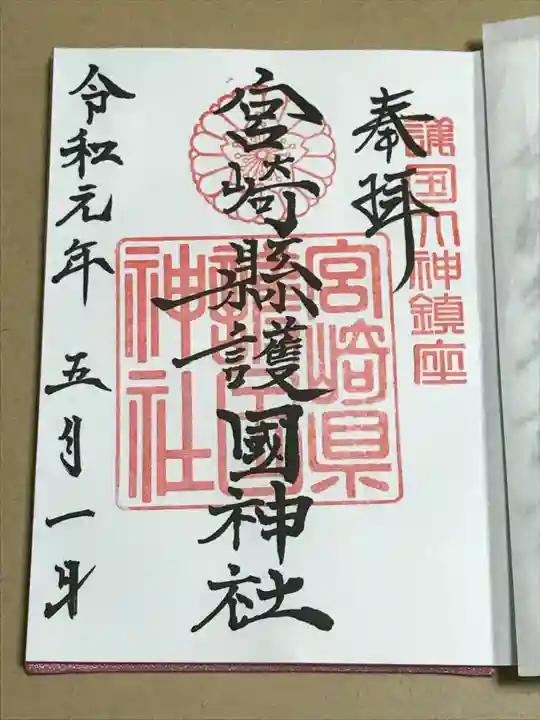 護国大神鎮座
奉拝
宮崎縣護國神社
宮崎県
護国
神社
令和元年 五月一日